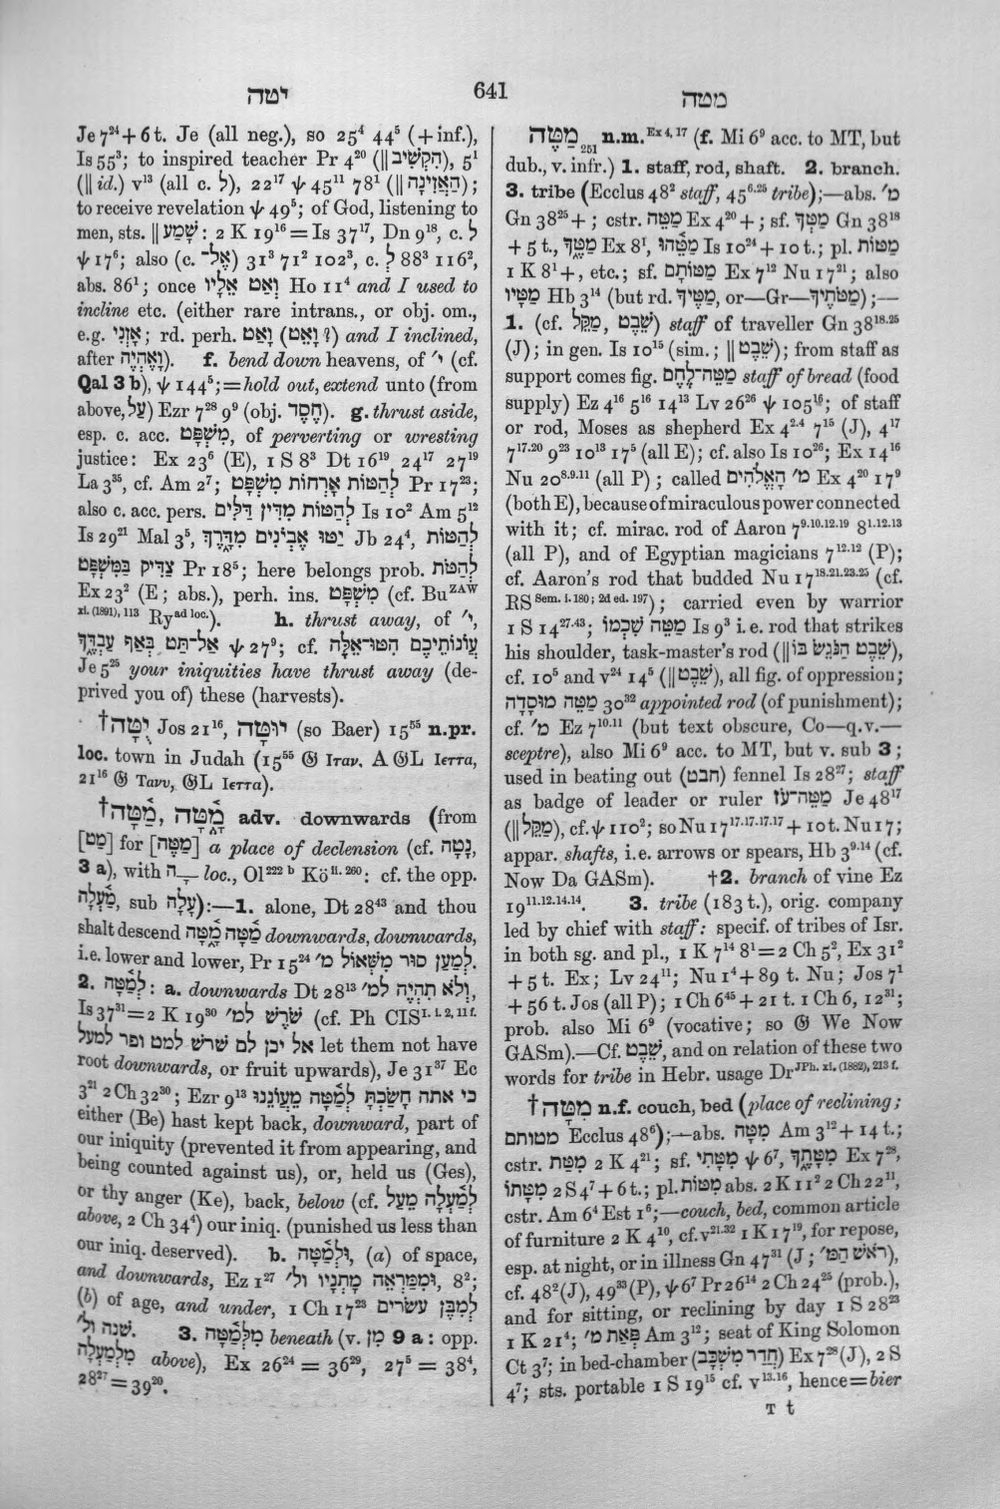 יטה
641
מטה
Je 7²⁴ + 6 t. Je (all neg.), so 25⁴ 44⁵ (+ inf.),
Is 55³; to inspired teacher Pr 4²⁰ (‖ הַקְשִׁיב), 5¹
(‖ id.) v¹³ (all c. לְ), 22¹⁷ ψ 45¹¹ 78¹ (‖ הַאֲזִינָה);
to receive revelation ψ 49⁵; of God, listening to
men, sts. ‖ שָׁמַע : 2 K 19¹⁶ = Is 37¹⁷, Dn 9¹⁸, c. לְ
ψ 17⁶; also (c. אֶל־) 31³ 71² 102³, c. לְ 88³ 116²,
abs. 86¹; once וְאַט אֵלָיו Ho 11⁴ and I used to
incline etc. (either rare intrans., or obj. om.,
e.g. אָזְנִי; rd. perh. וָאֵט (וָאַט ?) and I inclined,
after וָאֶהְיֶה). f. bend down heavens, of י׳ (cf.
Qal 3 b), ψ 144⁵; = hold out, extend unto (from
above, עַל) Ezr 7²⁸ 9⁹ (obj. חֶסֶד). g. thrust aside,
esp. c. acc. מִשְׁפָּט, of perverting or wresting
justice: Ex 23⁶ (E), 1 S 8³ Dt 16¹⁹ 24¹⁷ 27¹⁹
La 3³⁵, cf. Am 2⁷; לְהַטּוֹת אָרְחוֹת מִשְׁפָּט Pr 17²³;
also c. acc. pers. לְהַטּוֹת מִדִּין דַּלִּים Is 10² Am 5¹²
Is 29²¹ Mal 3⁵, יַטּוּ אֶבְיוֹנִים מִדָּרֶךְ Jb 24⁴, לְהַטּוֹת
צַדִּיק בַּמִּשְׁפָּט Pr 18⁵; here belongs prob. לְהַטֹּת
Ex 23² (E; abs.), perh. ins. מִשְׁפָּט (cf. Bu ZAW
xi. (1891), 113 Ry ad loc.). h. thrust away, of י׳,
אַל־תַּט בְּאַף עַבְדֶּךָ ψ 27⁹; cf. עֲוֹנוֹתֵיכֶם הִטּוּ־אֵלֶּה
Je 5²⁵ your iniquities have thrust away (de-
prived you of) these (harvests).
†יֻטָּה Jos 21¹⁶, יוּטָּה (so Baer) 15⁵⁵ n.pr.
loc. town in Judah (15⁵⁵ 𝔊 Ιταν, A 𝔊L Ιεττα,
21¹⁶ 𝔊 Τανυ, 𝔊L Ιεττα).
†מַ֫טָּה, מָ֫טָּה adv. downwards (from
[מַט] for [מַטֶּה] a place of declension (cf. נָטָה,
3 a), with ה ָ loc., Ol²²² ᵇ Kö ii. 260: cf. the opp.
מַ֫עְלָה, sub עָלָה):—1. alone, Dt 28⁴³ and thou
shalt descend מַ֫טָּה מָּ֫טָּה downwards, downwards,
i.e. lower and lower, Pr 15²⁴ לְמַעַן סוּר מִשְּׁאוֹל מ׳.
2. לְמַ֫טָּה: a. downwards Dt 28¹³ וְלֹא תִהְיֶה לְמ׳,
Is 37³¹ = 2 K 19³⁰ שֹׁרֶשׁ לְמ׳ (cf. Ph CIS I. i. 2, 11 f.
אל יכן לם שרש למט ופר למעל let them not have
root downwards, or fruit upwards), Je 31³⁷ Ec
3²¹ 2 Ch 32³⁰; Ezr 9¹³ כי אתה חָשַׂכְתָּ לְמַ֫טָּה מֵעֲוֹנֵנוּ
either (Be) hast kept back, downward, part of
our iniquity (prevented it from appearing, and
being counted against us), or, held us (Ges),
or thy anger (Ke), back, below (cf. לְמַ֫עְלָה מֵעַל
above, 2 Ch 34⁴) our iniq. (punished us less than
our iniq. deserved). b. וּלְמַ֫טָּה, (a) of space,
and downwards, Ez 1²⁷ וּמִמַּרְאֵה מָתְנָיו ול׳, 8²;
(b) of age, and under, 1 Ch 17²³ לְמִבֶּן עשׂרים
שׁנה ול׳. 3. מִלְּמַ֫טָּה beneath (v. מִן 9 a: opp.
מִלְמַעְלָה above), Ex 26²⁴ = 36²⁹, 27⁵ = 38⁴,
28²⁷ = 39²⁰.
מַטֶּה ₂₅₁ n.m. Ex 4, 17 (f. Mi 6⁹ acc. to MT, but
dub., v. infr.) 1. staff, rod, shaft. 2. branch.
3. tribe (Ecclus 48² staff, 45⁶·²⁵ tribe);—abs. מ׳
Gn 38²⁵ + ; cstr. מַטֵּה Ex 4²⁰ + ; sf. מַטְּךָ Gn 38¹⁸
+ 5 t., מַטֶּךָ Ex 8¹, מַטֵּהוּ Is 10²⁴ + 10 t.; pl. מַטּוֹת
1 K 8¹ +, etc.; sf. מַטּוֹתָם Ex 7¹² Nu 17²¹; also
מַטָּיו Hb 3¹⁴ (but rd. מַטֶּיךָ, or—Gr—מַטֹּתֶיךָ);—
1. (cf. מַקֵּל, שֵׁבֶט) staff of traveller Gn 38¹⁸·²⁵
(J); in gen. Is 10¹⁵ (sim.; ‖ שֵׁבֶט); from staff as
support comes fig. מַטֵּה־לֶחֶם staff of bread (food
supply) Ez 4¹⁶ 5¹⁶ 14¹³ Lv 26²⁶ ψ 105¹⁶; of staff
or rod, Moses as shepherd Ex 4²·⁴ 7¹⁵ (J), 4¹⁷
7¹⁷·²⁰ 9²³ 10¹³ 17⁵ (all E); cf. also Is 10²⁶; Ex 14¹⁶
Nu 20⁸·⁹·¹¹ (all P); called מ׳ הָאֱלֹהִים Ex 4²⁰ 17⁹
(both E), because of miraculous power connected
with it; cf. mirac. rod of Aaron 7⁹·¹⁰·¹²·¹⁹ 8¹·¹²·¹³
(all P), and of Egyptian magicians 7¹²·¹² (P);
cf. Aaron's rod that budded Nu 17¹⁸·²¹·²³·²⁵ (cf.
RS Sem. i. 180; 2d ed. 197); carried even by warrior
1 S 14²⁷·⁴³; מַטֵּה שִׁכְמוֹ Is 9³ i.e. rod that strikes
his shoulder, task-master's rod (‖ שֵׁבֶט הַנֹּגֵשׂ בּוֹ),
cf. 10⁵ and v²⁴ 14⁵ (‖ שֵׁבֶט), all fig. of oppression;
מַטֵּה מוּסָדָה 30³² appointed rod (of punishment);
cf. מ׳ Ez 7¹⁰·¹¹ (but text obscure, Co—q.v.—
sceptre), also Mi 6⁹ acc. to MT, but v. sub 3;
used in beating out (חבט) fennel Is 28²⁷; staff
as badge of leader or ruler מַטֵּה־עֹז Je 48¹⁷
(‖ מַקֵּל), cf. ψ 110²; so Nu 17¹⁷·¹⁷·¹⁷·¹⁷ + 10 t. Nu 17;
appar. shafts, i.e. arrows or spears, Hb 3⁹·¹⁴ (cf.
Now Da GASm). †2. branch of vine Ez
19¹¹·¹²·¹⁴·¹⁴. 3. tribe (183 t.), orig. company
led by chief with staff: specif. of tribes of Isr.
in both sg. and pl., 1 K 7¹⁴ 8¹ = 2 Ch 5², Ex 31²
+ 5 t. Ex; Lv 24¹¹; Nu 1⁴ + 89 t. Nu; Jos 7¹
+ 56 t. Jos (all P); 1 Ch 6⁴⁵ + 21 t. 1 Ch 6, 12³¹;
prob. also Mi 6⁹ (vocative; so 𝔊 We Now
GASm).—Cf. שֵׁבֶט, and on relation of these two
words for tribe in Hebr. usage Dr JPh. xi. (1882), 213 f.
†מִטָּה n.f. couch, bed (place of reclining;
מטותם Ecclus 48⁶);—abs. מִטָּה Am 3¹² + 14 t.;
cstr. מִטַּת 2 K 4²¹; sf. מִטָּתִי ψ 6⁷, מִטָּתֶךָ Ex 7²⁸,
מִטָּתוֹ 2 S 4⁷ + 6 t.; pl. מִטּוֹת abs. 2 K 11² 2 Ch 22¹¹,
cstr. Am 6⁴ Est 1⁶;—couch, bed, common article
of furniture 2 K 4¹⁰, cf. v²¹·³² 1 K 17¹⁹, for repose,
esp. at night, or in illness Gn 47³¹ (J; רֹאשׁ הַמּ׳),
cf. 48² (J), 49³³ (P), ψ 6⁷ Pr 26¹⁴ 2 Ch 24²⁵ (prob.),
and for sitting, or reclining by day 1 S 28²³
1 K 21⁴; פְּאַת מ׳ Am 3¹²; seat of King Solomon
Ct 3⁷; in bed-chamber (חֲדַר מִשְׁכָּב) Ex 7²⁸ (J), 2 S
4⁷; sts. portable 1 S 19¹⁵ cf. v¹³·¹⁶, hence = bier
T t